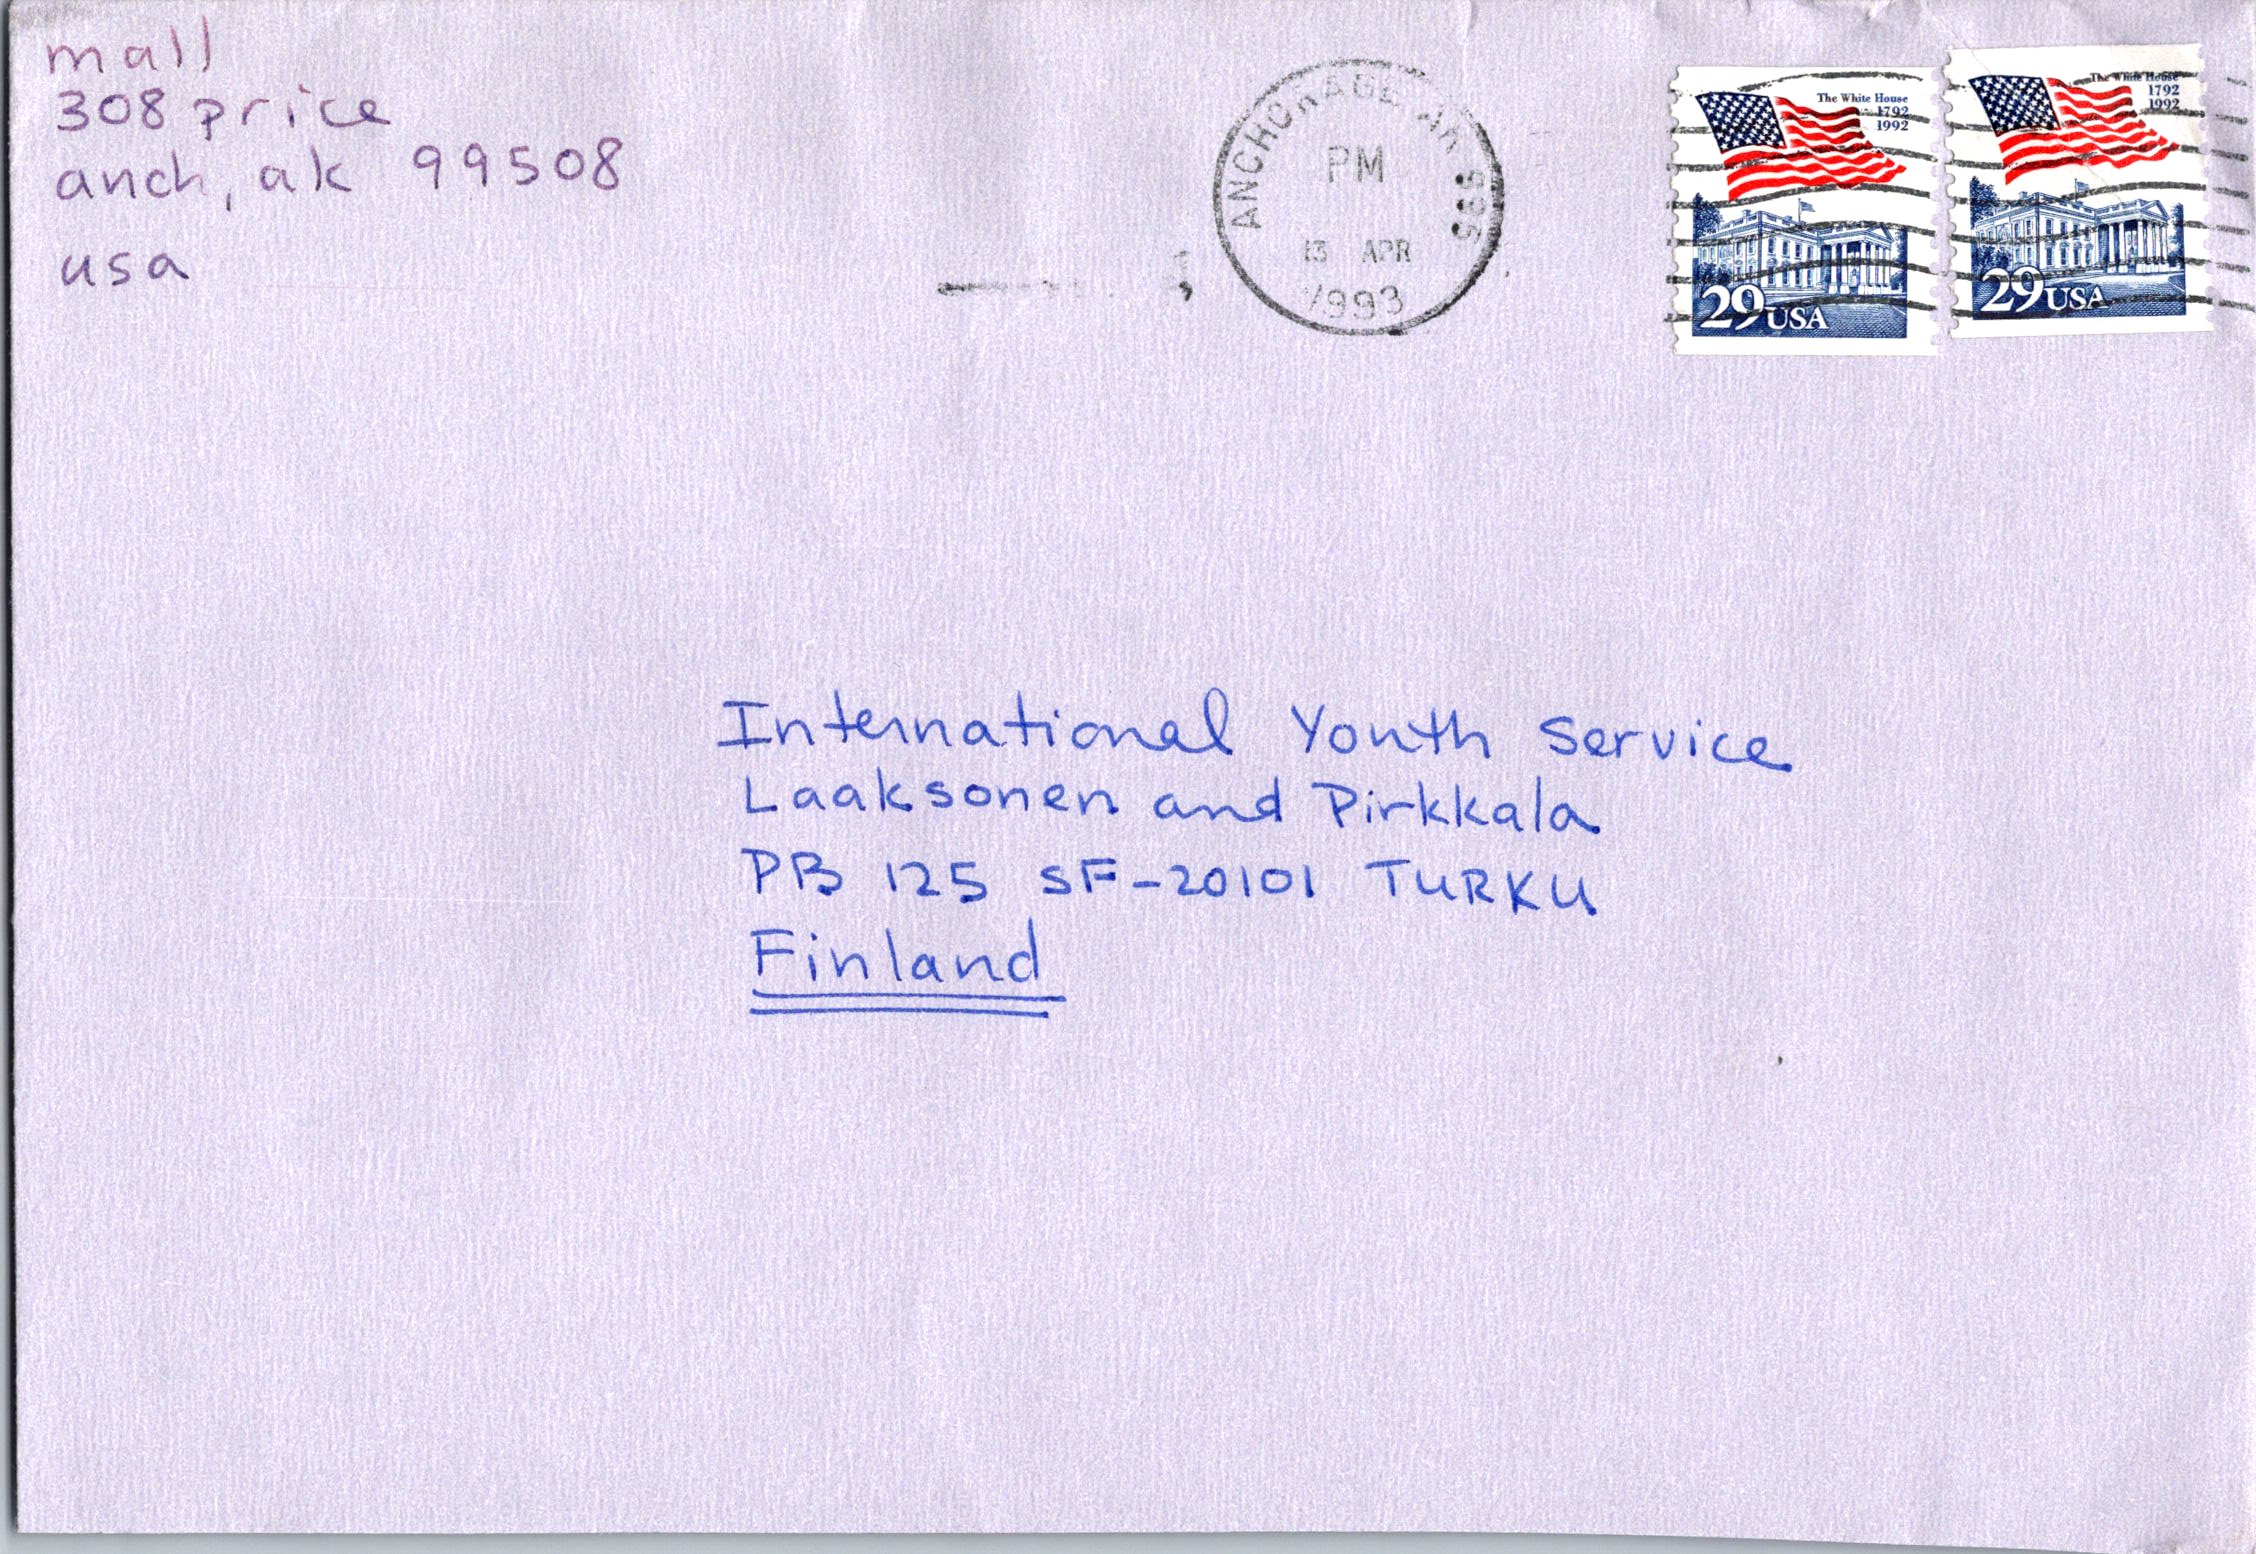 mall
308 price
anch, ak 99508
usa
ANCHORAGE AK 995
PM
13 APR
1993
The White House
1792
1992
29 USA
The White House
1792
1992
29 USA
International Youth Service
Laaksonen and Pirkkala
PB 125 SF-20101 TURKU
Finland